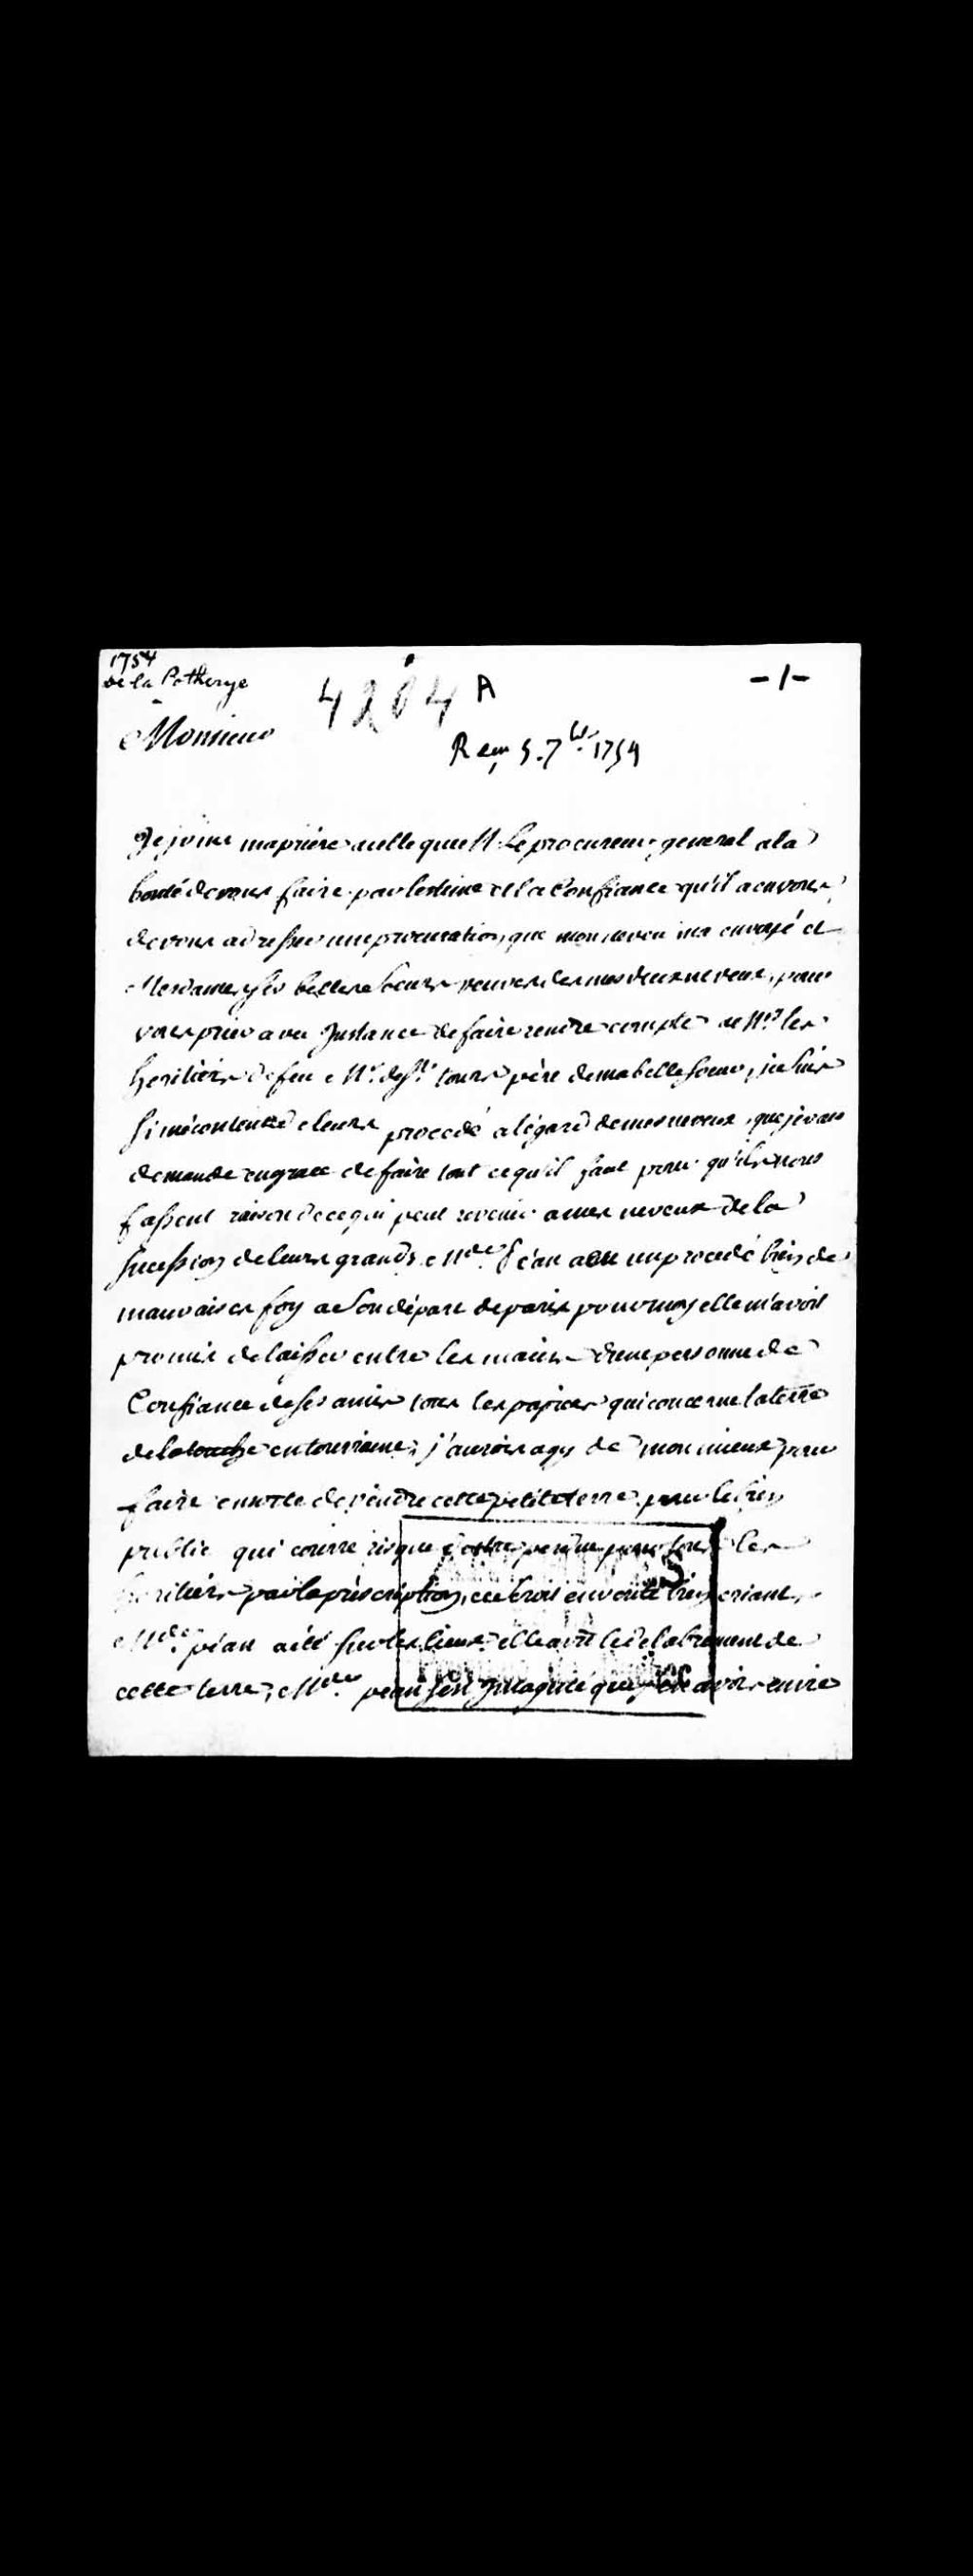 1754
De la Potherye
4204 A
-1-
Monsieur
Reçu 5. 7bre 1754
Je joins ma priére a celle que Mr Le procureur general a la
bonté de vous faire par lestime et la Confiance qu'il a en vous
de vous adresser une procuration, que mon neveu ma envoyé et
Mesdames ses belles soeurs veuves de mes deux neveux, pour
vous prier avec Instance de faire rendre compte a Mrs les
heritiers de feu Mr de St tours père de ma belle soeur, je suis
si mécontente de leurs procedé a légard de mes neveux, que je vous
demande en grace de faire tout ce qu'il faut pour qu'ils nous
fassent raison de ce qui peut revenir a mes neveux de la
sucession de leurs grands. Mde Péan a eu un procedé bien de
mauvaise foy a son départ de paris pour moy elle m'avoit
promis de laisser entre les mains dune personne de
Confiance de ses amies tous les papiers qui concerne la terre
de la touche en tourraine, j'aurois agy de mon mieux pour
faire en sorte de vendre cette petite terre pour le bien
public qui courre risque d'estre perdue pour tous les
heritiers par la préscription, ce seroit en verité bien criant,
Mde péan a été sur les lieux elle a vû le délabrement de
cette terre, Mde pean s'est Imaginé que avoir envie